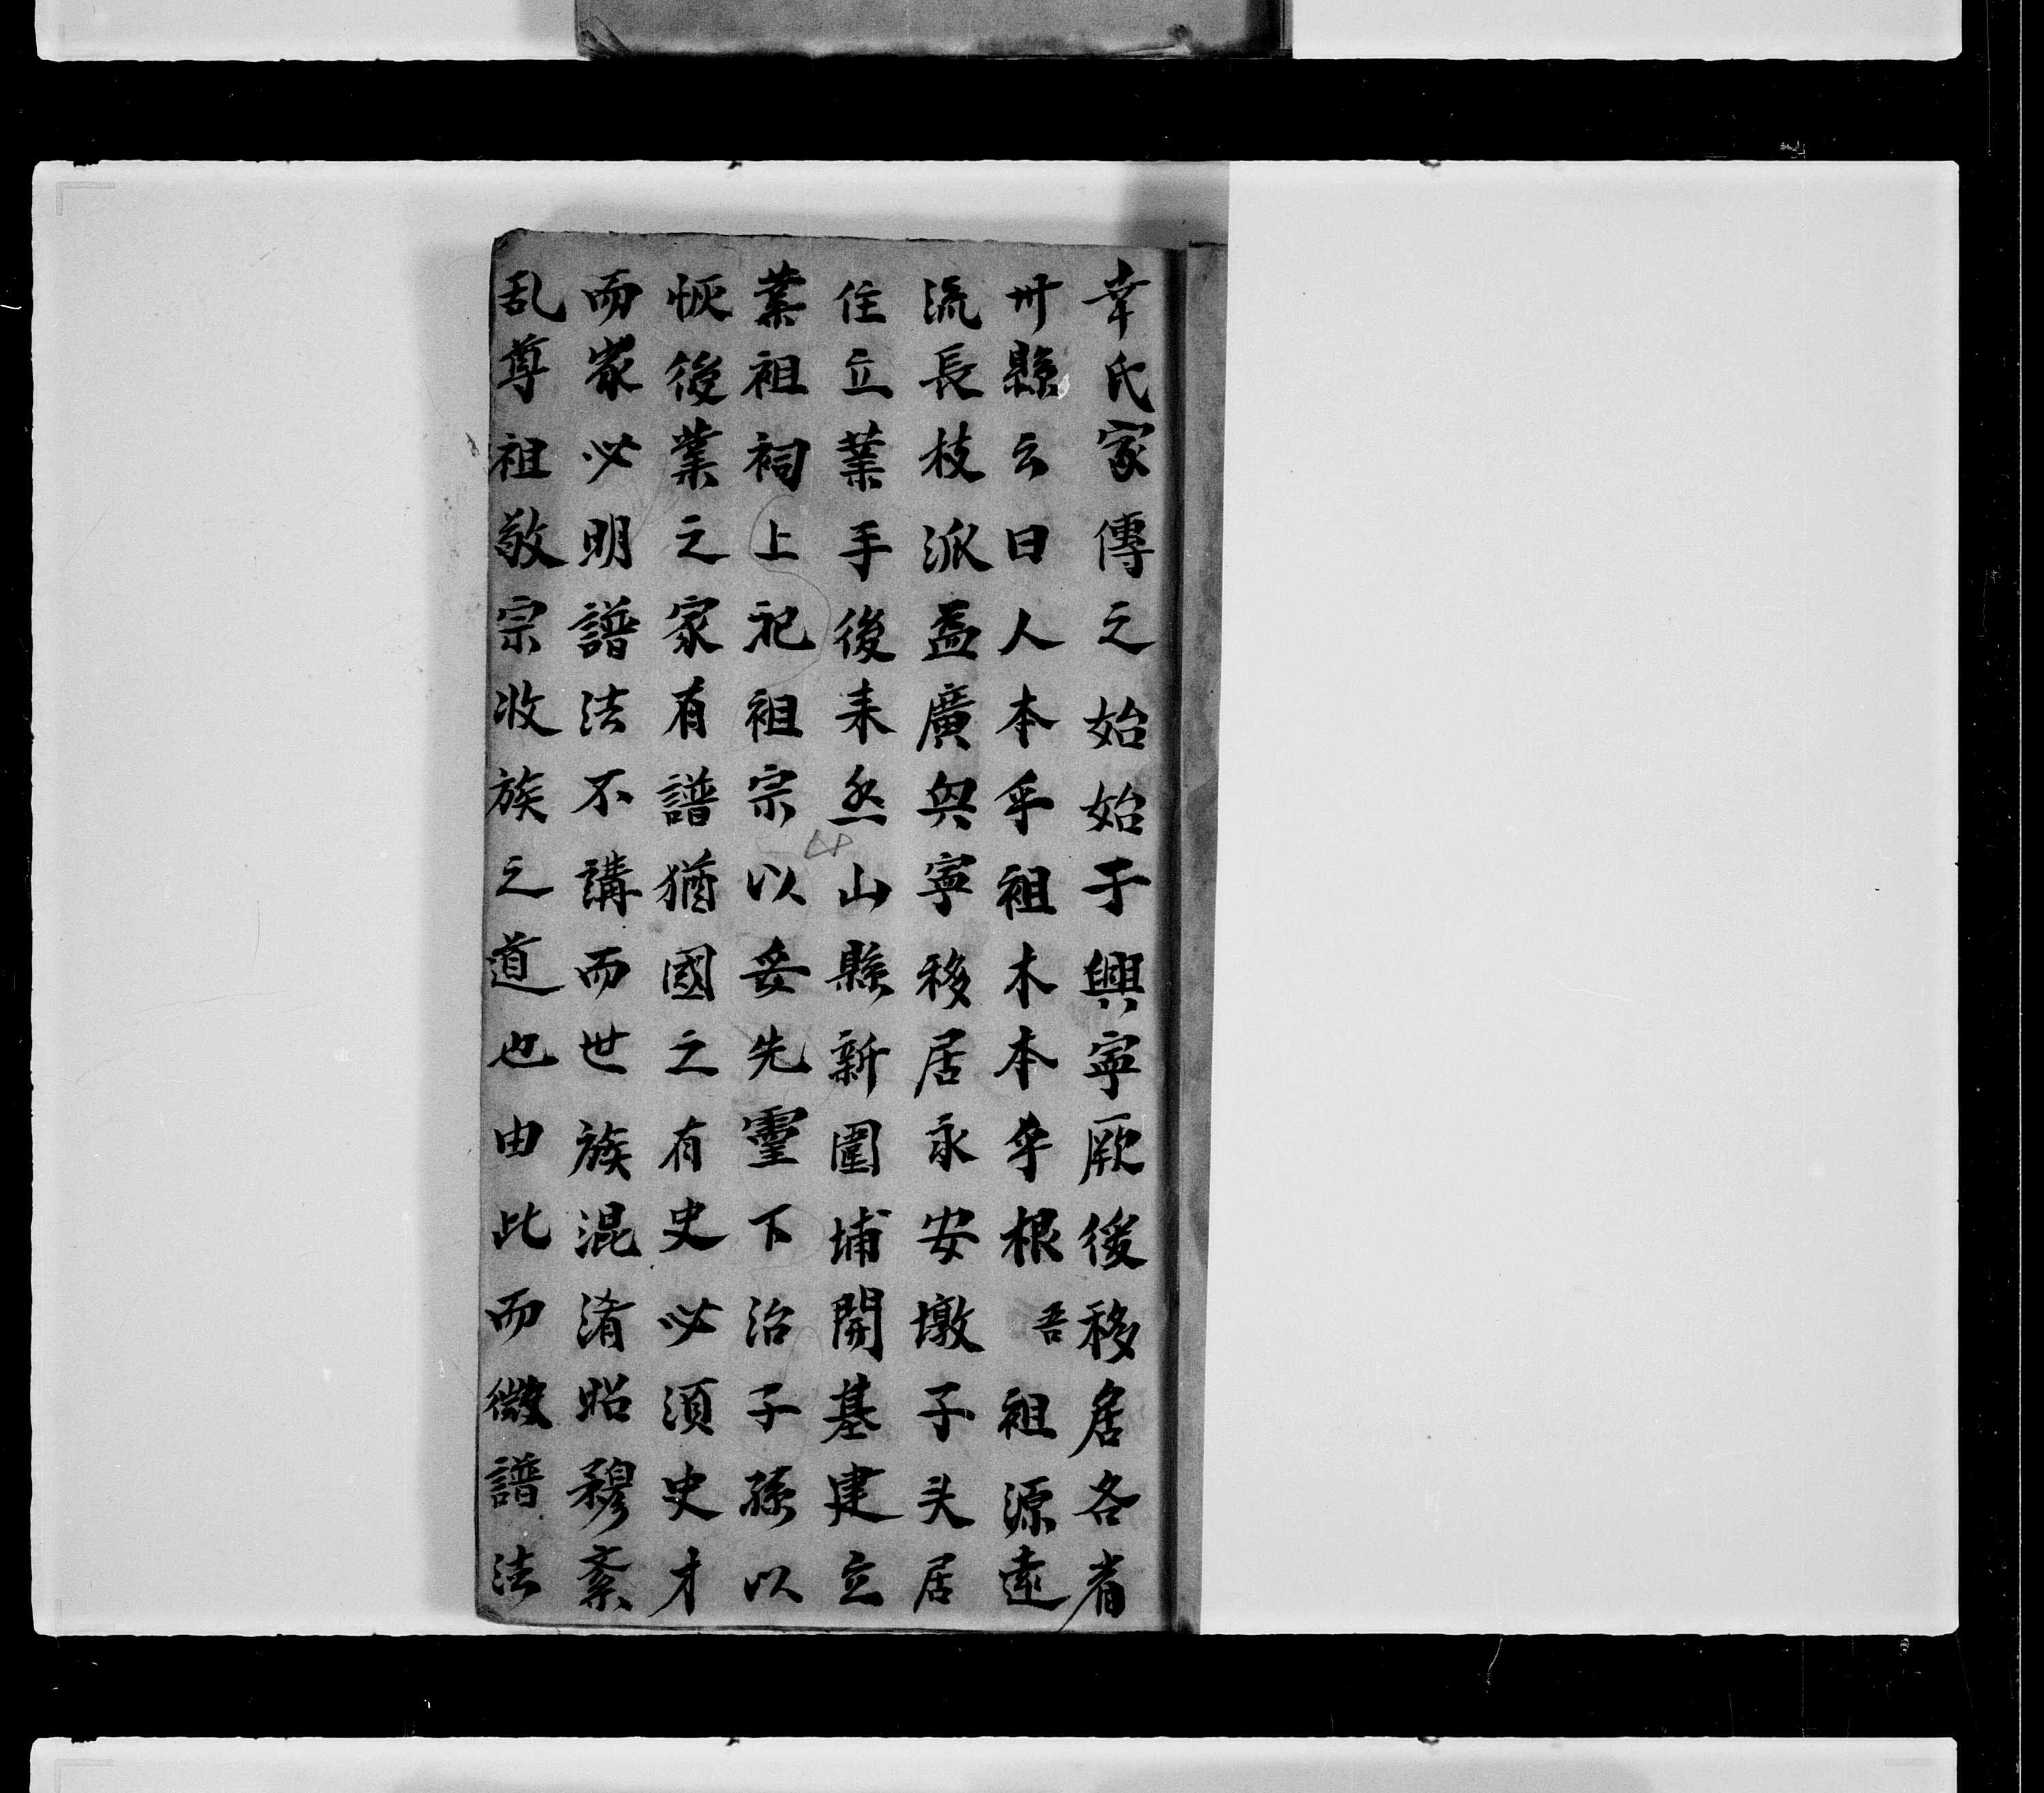 幸氏家傳之始始于興寧厥後移居各省
卅縣云曰人本乎祖木本乎根吾祖源遠
流長枝派益廣與寧移居永安墩子头居
住立業手後来烝山縣新圍埔開基建立
業祖祠上祀祖宗以妥先霊下治子孫以
恢後業之家有譜猶國之有史必須史才
而家必明譜法不講而世族混淆昭穆紊
乱尊祖敬宗收族之道也由此而微譜法